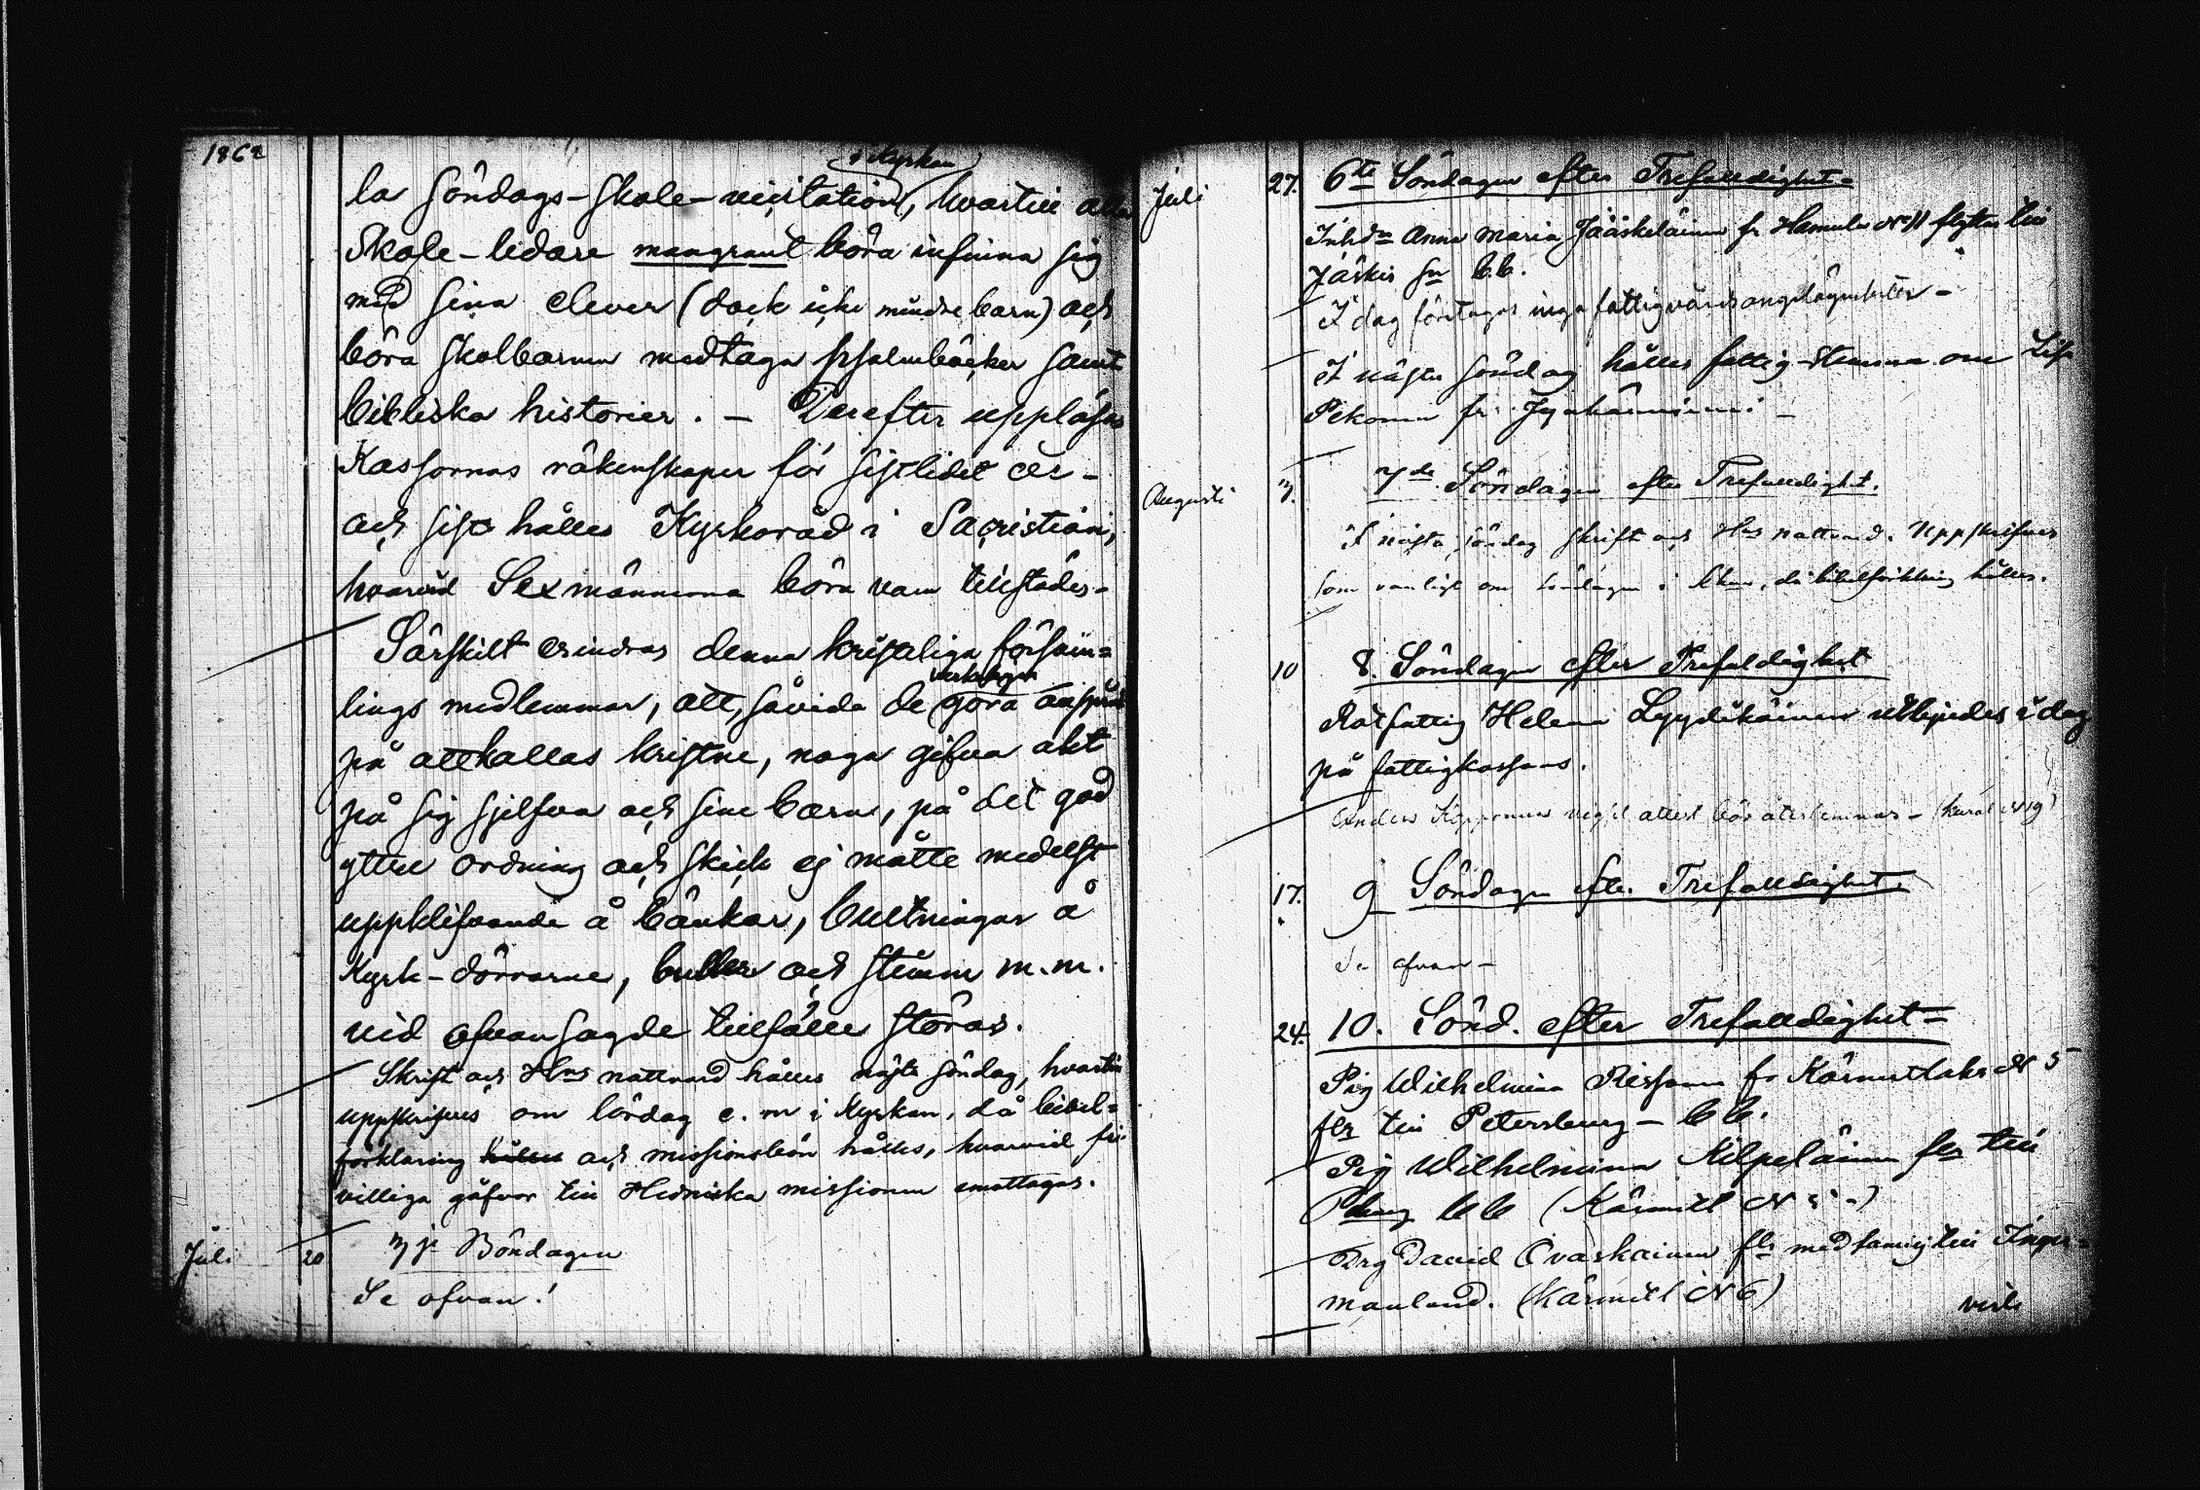 1862
i Kyrkan
la söndags-skole-visitation, hvartill alla
Skole-ledare mangrant böra infinna sig
med sina elever (dock icke mindre barn) och
böra skolbarnen medtaga psalmböcker samt
bibliska historier. — Derefter uppläses
Kassornas räkenskaper för sistlidet år –
och sist hålles Kyrkoråd i Sacristian,
hvarvid Sexmännerna böra vara tillstädes –
Särskilt erindras denna kristliga försam=
verkligen
lings medlemmar, att, såvida de göra anspråk
på att kallas kristne, noga gifva akt
på sig sjelfva och sine barn, på det god
yttre ordning och skick ej måtte medelst
uppklifvande å bänkar, bultningar å
Kyrk-dörrarne, buller och stimm m.m.
vid ofvansagde tillfälle störas.
Skrift och Hns nattvard hålles nästa söndag, hvartill
uppskrifves om lördag e.m i Kyrkan, då bibel=
förklaring hålles och missionsbön hålles, hvarvid fri
villiga gåfvor till Hedniska missionen emottagas.
Juli 20 3je Böndagen
Se ofvan!
Juli 27. 6te Söndagen efter Trefalldighet –
Inhda Anna Maria Jääskeläinen fr Hamula N 11 flyttar till
Jäskis sn b.b.
I dag företagas inga fattigvårdsangelägenheter –
I nästa söndag hålles fattig-stemma om Lisa
Pekonen fr.
Augusti 3. 7de Söndagen efter Trefalldighet.
I nästa söndag skrift och Hns nattvard. Uppskrifves
som vanligt om Lördagen i bibelförklaring hålles.
10 8. Söndagen efter Trefaldighet
Rotfattig Helena Lyydikäinen utbjudes i dag
på fattigkassans.
Anders attest bör återlemnas –
17. 9 Söndagen efter Trefalldighet.
Se ofvan –
24. 10. Sönd. efter Trefalldighet –
Pig Wilhelmina Reissonen fr Kärmetlaks N 5
fltr till Petersburg – bb.
Pig Wilhelmina Kilpeläinen fltr till
Pburg bb (Kärmetl N
Drg David Ovaskainen fltr med familj till Inger=
manland. (Kärmetl N 6)
vert.